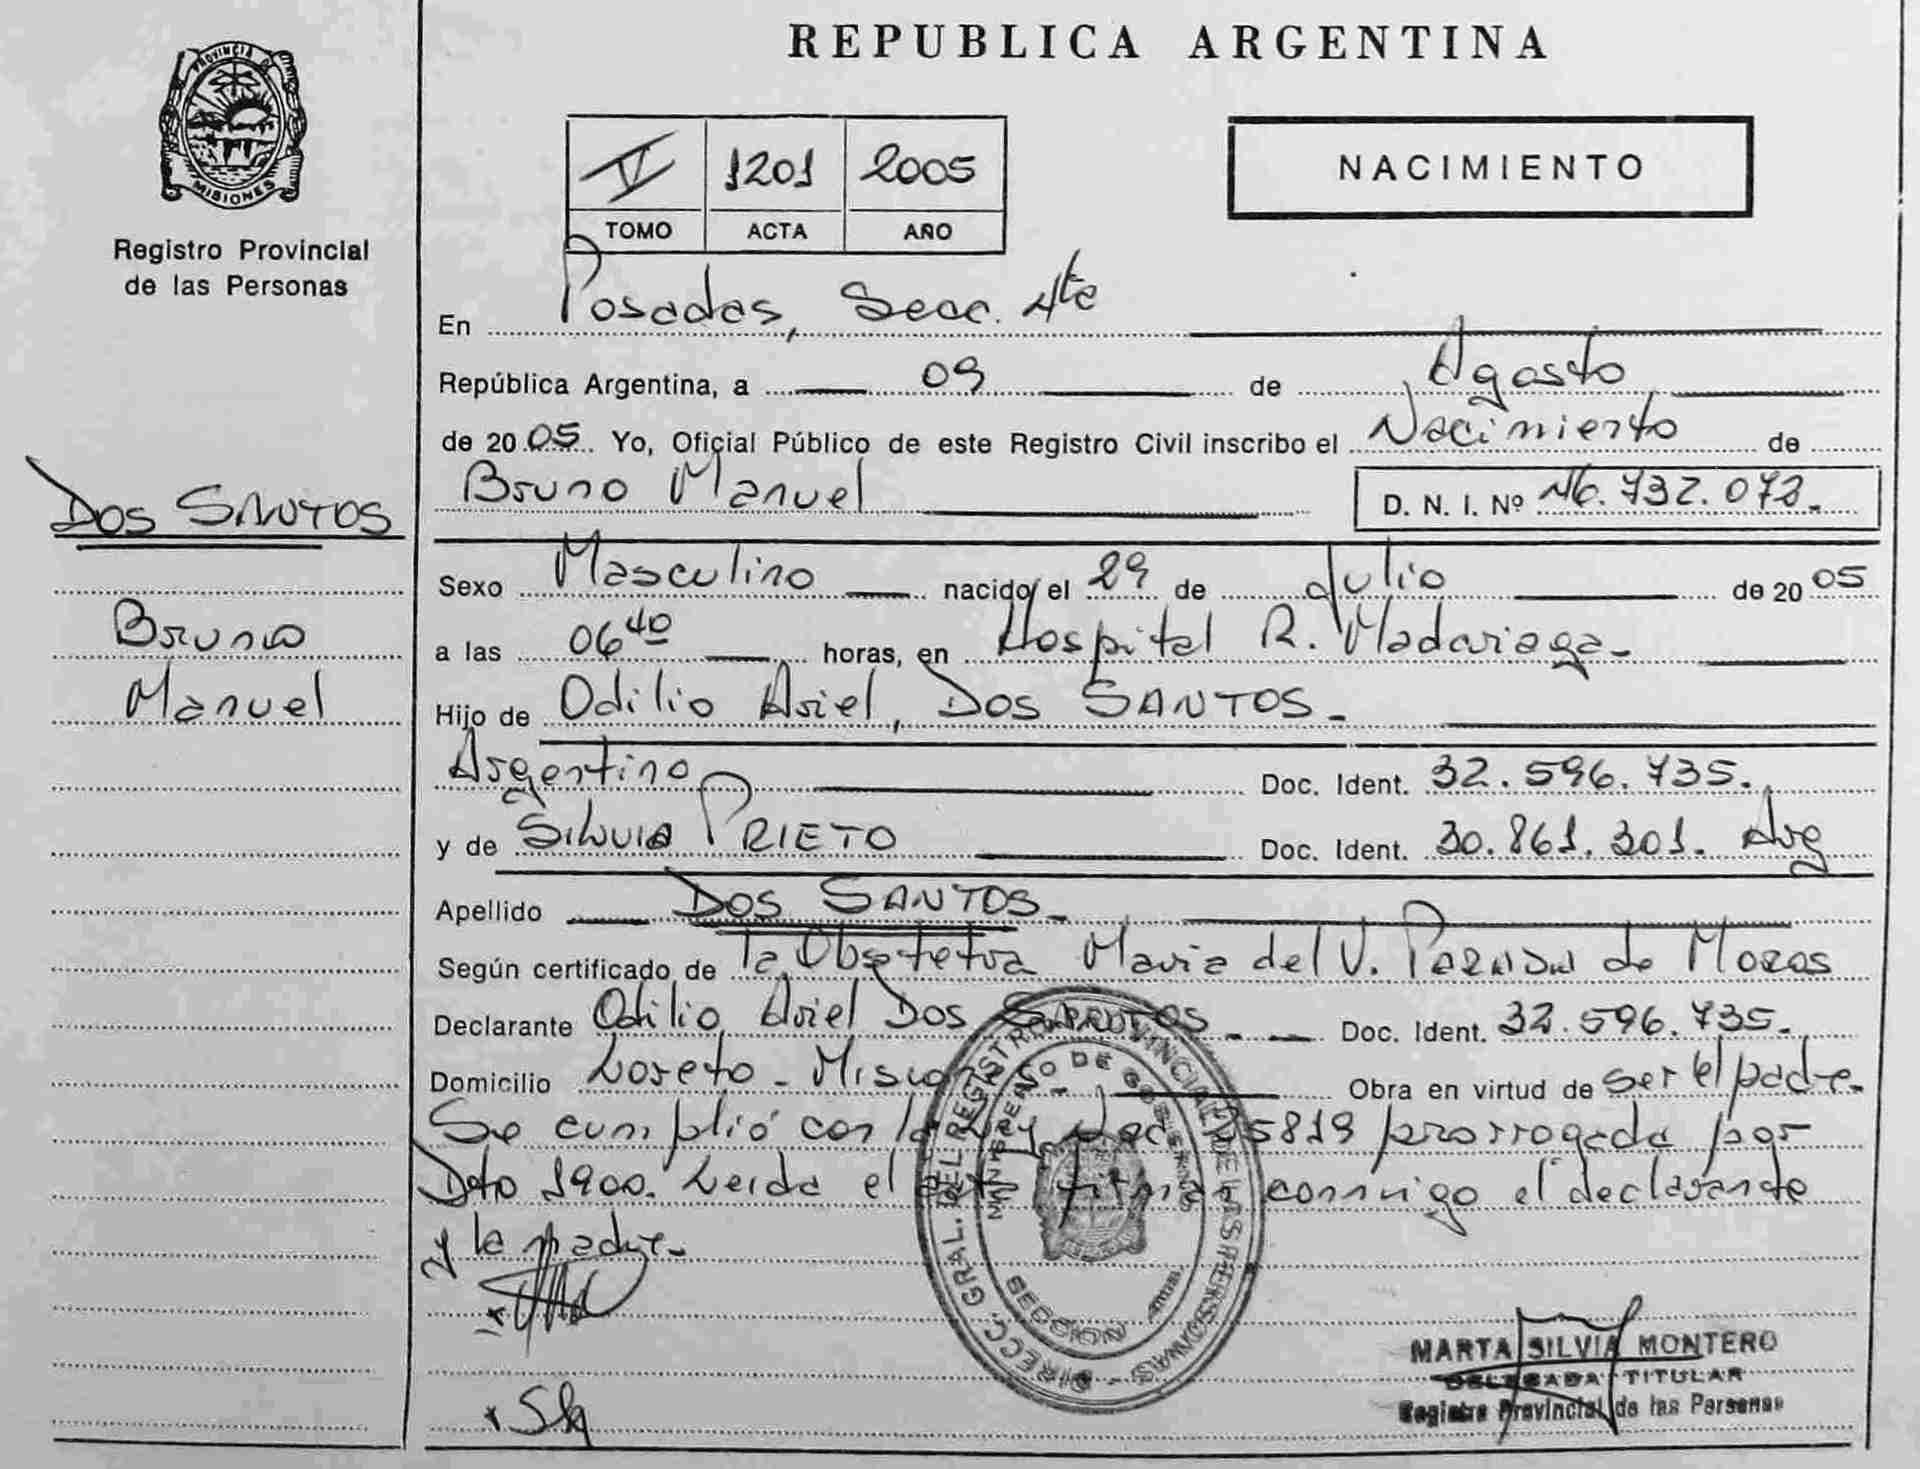 REPUBLICA ARGENTINA
PROVINCIA DE MISIONES
Registro Provincial
de las Personas
IV 1201 2005
TOMO ACTA AÑO
NACIMIENTO
En Posadas, Secc. 4ta
República Argentina, a 09 de Agosto
de 2005. Yo, Oficial Público de este Registro Civil inscribo el Nacimiento de
Bruno Manuel D. N. I. Nº 46.732.073.
DOS SANTOS
Bruno
Manuel
Sexo Masculino nacido el 29 de Julio de 2005
a las 06 40 horas, en Hospital R. Madariaga-
Hijo de Odilio Ariel, DOS SANTOS-
Argentino Doc. Ident. 32.596.735.
y de SILVIA PRIETO Doc. Ident. 30.861.301. Arg
Apellido DOS SANTOS-
Según certificado de la Obstetra Maria del V. de Moras
Declarante Odilio Ariel DOS SANTOS- Doc. Ident. 32.596.735.
Domicilio Loreto - Misiones Obra en virtud de ser el padre-
Se cumplió con la Ley Nac. 25819 prorrogada por
Dto 1900. Leída el acta firman conmigo el declarante
y la madre-
DIRECC. GRAL. DEL REGISTRO PROVINCIAL DE LAS PERSONAS
MINISTERIO DE GOBIERNO
SECCION
MARTA SILVIA MONTERO
DELEGADA TITULAR
Registro Provincial de las Personas